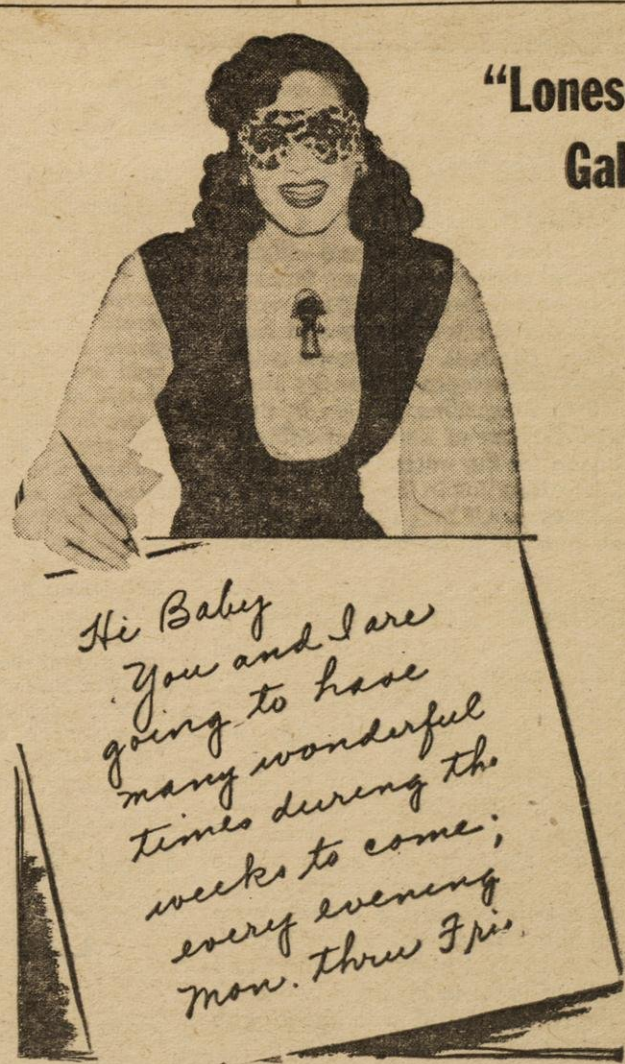 “Lones
Gal
Hi Baby
You and I are
going to have
many wonderful
times during the
weeks to come;
every evening
Mon. thru Fri.